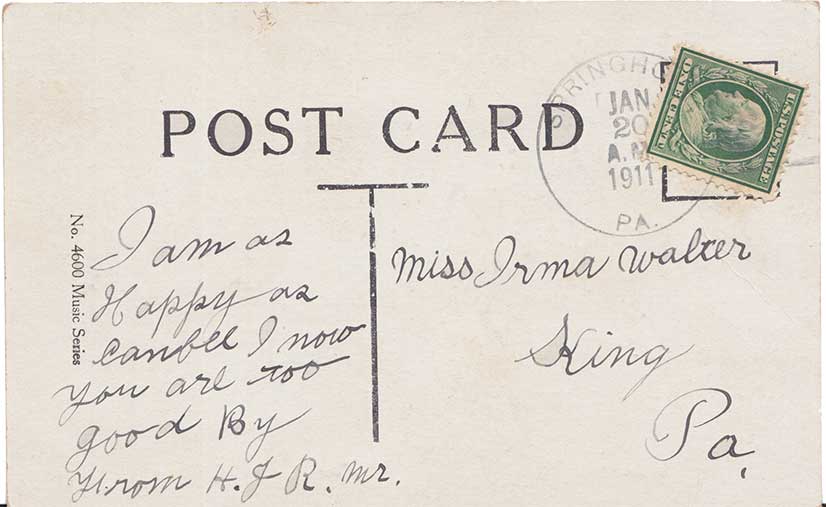 POST CARD
SPRINGHO
JAN.
20
A.M.
1911
PA.
U.S. POSTAGE
ONE CENT
No. 4600 Music Series
I am as
Happy as
canbee I now
you are too
good By
From H. J R. Mr.
Miss Irma Walter
King
Pa.